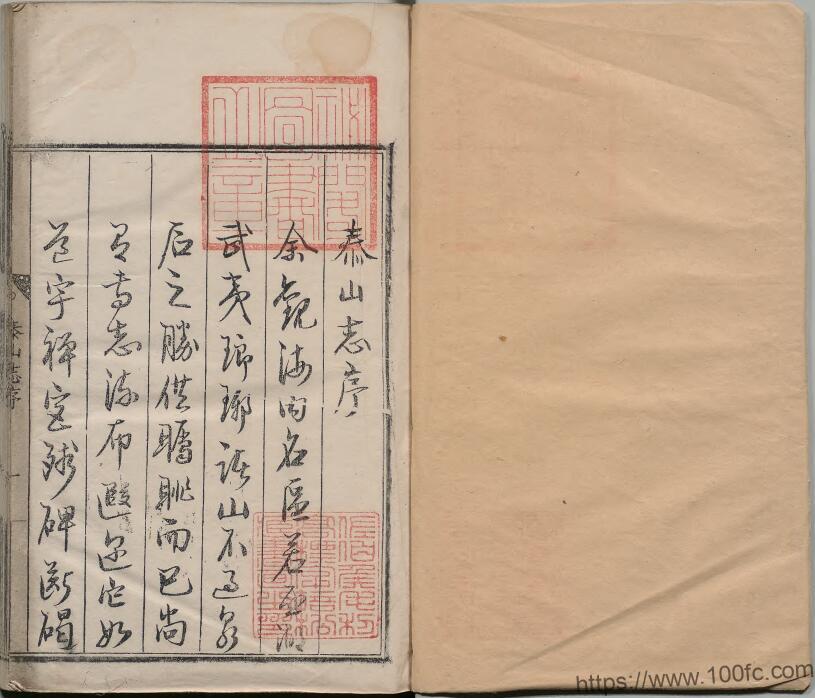 泰山志序
余觀海内名區若西湖
武夷琅琊諸山不過泉
石之勝供矚眺而已尚
有專志流布遐邇它如
宇禪宮殘碑斷碣
泰山志序
一
https://www.100fc.com